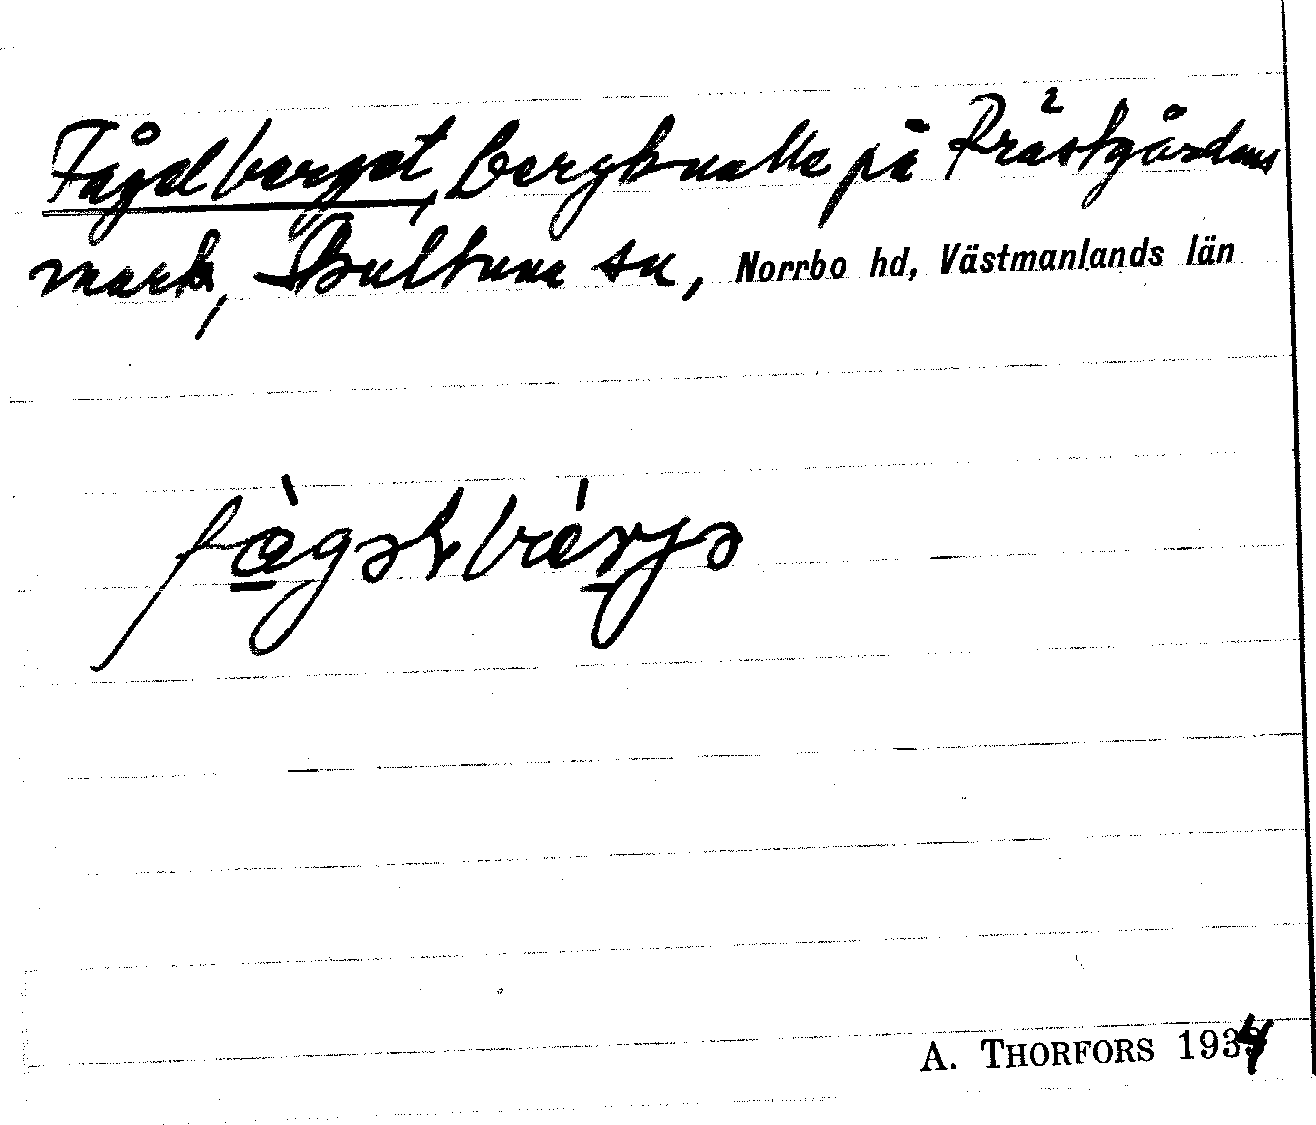 Fågelberget, bergknalle på Prästgårdens
mark, Skultuna sn, Norrbo hd, Västmanlands län
A. THORFORS 1934